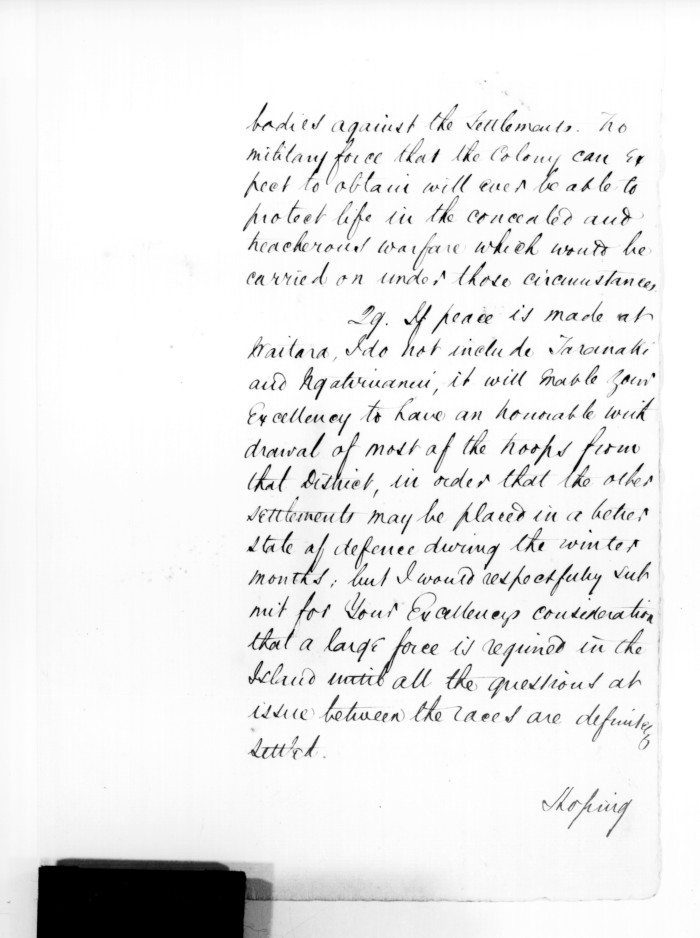 bodies against the Settlements. No
military force that the Colony can Ex
pect to obtain will ever be able to
protect life in the concealed and
treacherous warfare which would be
carried on under those circumstances.
29. If peace is made at
Waitara, I do not include Taranaki
and Ngatiruanui, it will enable Your
Excellency to have an honorable with
drawal of most of the troops from
that District, in order that the other
settlements may be placed in a better
state of defence during the winter
months; but I would respectfully sub
mit for Your Excellencys consideration
that a large force is required in the
Island until all the questions at
issue between the races are definitely
settled.
Hoping